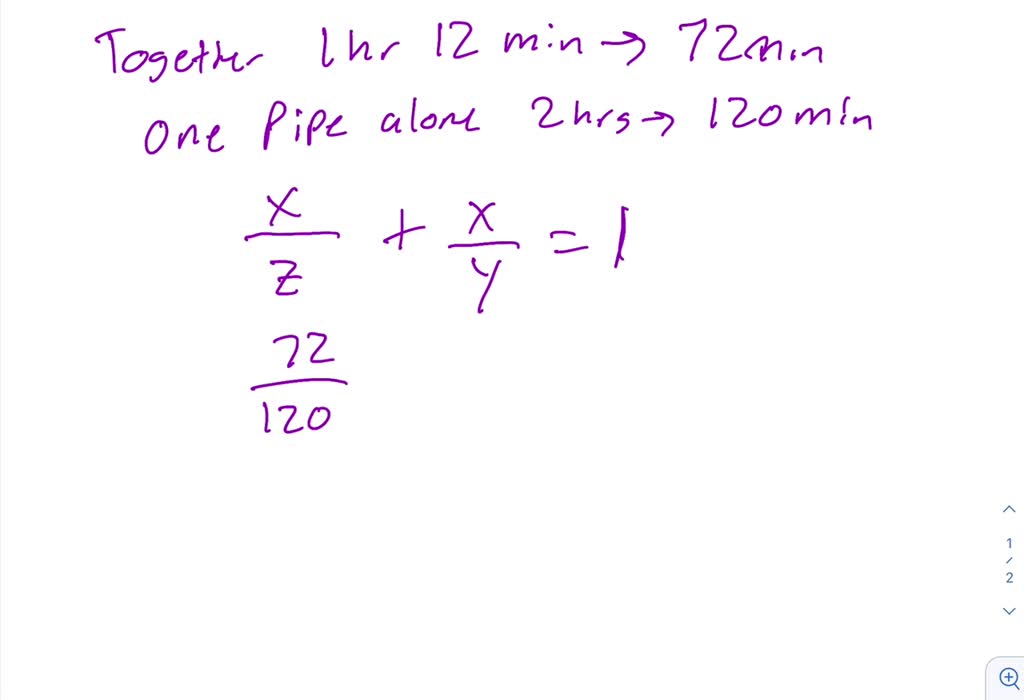 Together 1hr 12 min → 72min
One Pipe alone 2hrs → 120min
x/z + x/y = 1
72/120
1
/
2